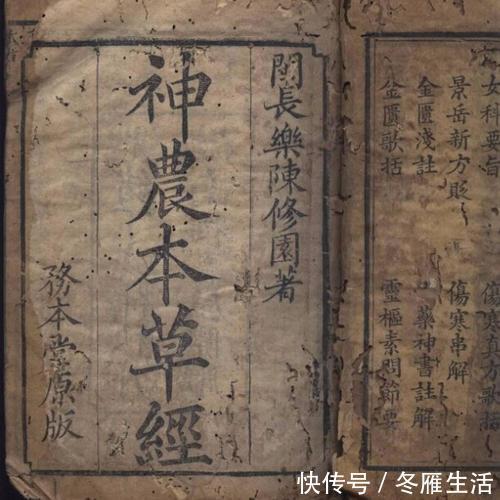 女科要旨
傷寒真方歌括
景岳新方貶
傷寒串解
金匱淺註
藥神書註解
金匱歌括
靈樞素問節要
閩長樂陳修園著
神農本草經
務本堂原版
快传号/冬雁生活